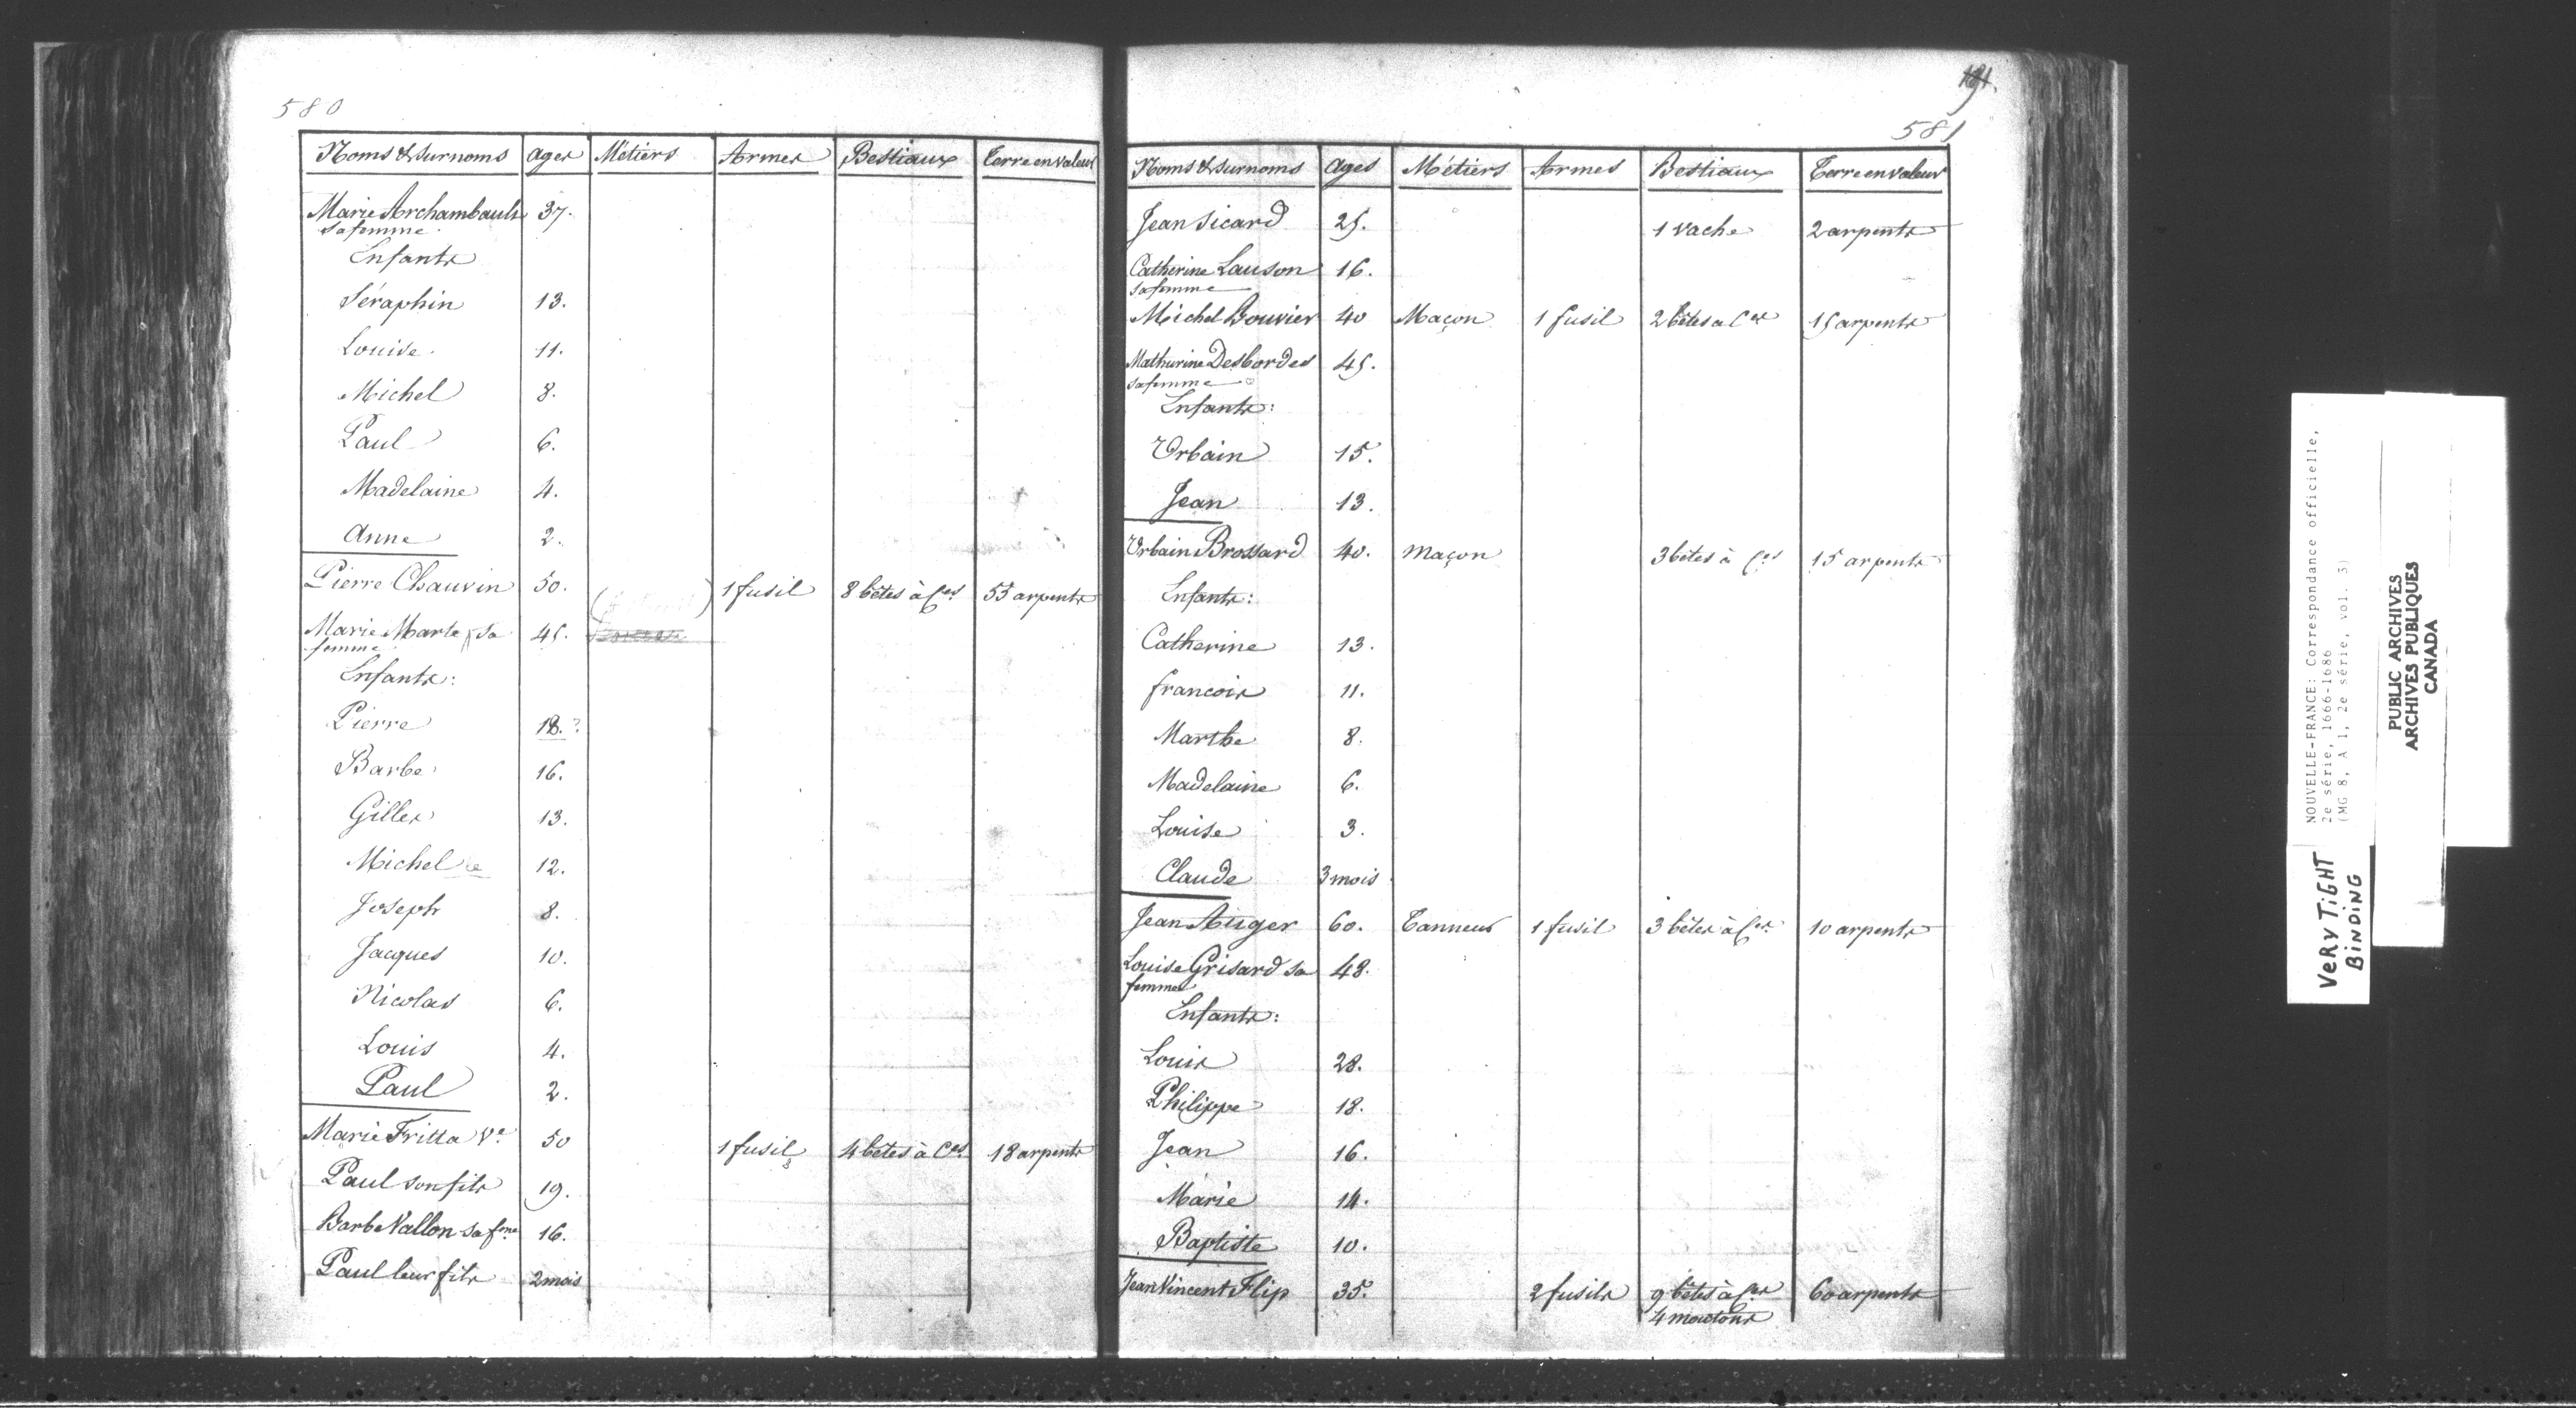 580
Noms & surnoms Ages Métiers Armes Bestiaux Terre en valeur
Marie Archambault 37.
sa femme.
Enfants
Séraphin 13.
Louise. 11.
Michel 8.
Paul 6.
Madelaine 4.
Anne 2.
Pierre Chauvin 50. 1 fusil 8 bêtes à Ces 55 arpents
Marie Marte sa 45.
femme
Enfants:
Pierre 18.?
Barbe 16.
Gilles 13.
Michel le 12.
Joseph 8.
Jacques 10.
Nicolas 6.
Louis 4.
Paul 2.
Marie Fritta Ve 50 1 fusil 4 bêtes à Ces 18 arpents
Paul son fils 19.
Barbe Vallon sa fme 16.
Paul leur fils 2 mois
191.
581
Noms & surnoms Ages Métiers Armes Bestiaux Terre en valeur
Jean Sicard 25. 1 vache 2 arpents
Catherine Lauson 16.
sa femme
Michel Bouvier 40 Maçon 1 fusil 2 bêtes à Ces 15 arpents
Mathurine Desbordes 45.
sa femme
Enfants:
Urbain 15.
Jean 13.
Urbain Brossard 40. Maçon 3 bêtes à Ces 15 arpents
Enfants:
Catherine 13.
francois 11.
Marthe 8.
Madelaine 6.
Louise 3.
Claude 3 mois
Jean Auger 60. Tanneur 1 fusil 3 bêtes à Ces 10 arpents
Louise Grisard sa 48.
femme
Enfants:
Louis 28.
Philippe 18.
Jean 16.
Marie 14.
Baptiste 10.
Jean Vincent Flip 35. 2 fusils 9 bêtes à Ces 60 arpents
4 moutons
NOUVELLE-FRANCE: Correspondance officielle,
2e série, 1666-1686
(MG 8, A 1, 2e série, vol. 3)
PUBLIC ARCHIVES
ARCHIVES PUBLIQUES
CANADA
VERY TIGHT
BINDING